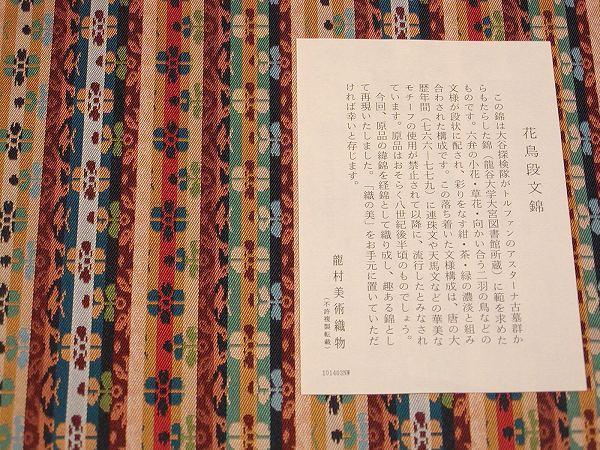 花鳥段文錦
この錦は大谷探検隊がトルファンのアスターナ古墓群か
らもたらした錦（龍谷大学大宮図書館所蔵）に範を求めた
ものです。六弁の小花・草花・向かい合う二羽の鳥などの
文様が段状に配され、彩りをなす紺・茶・緑の濃淡と組み
合わされた構成です。この落ち着いた文様構成は、唐の大
歴年間（七六六―七七九）に連珠文や天馬文などの華美な
モチーフの使用が禁止されて以降に、流行したとみなされ
ています。原品はおそらく八世紀後半頃のものでしょう。
今回、原品の緯錦を経錦として織り成し、趣ある錦とし
て再現いたしました。「織の美」をお手元に置いていただ
ければ幸いと存じます。
龍村美術織物
（不許複製転載）
101403NW